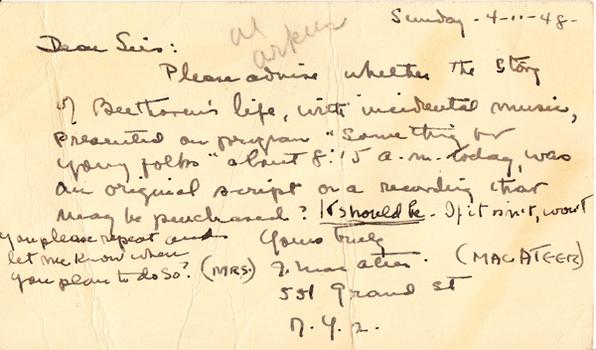 Sunday - 4-11-48-
Dear Sirs:
Please advise whether the story
of Beethoven's life, with incidental music,
presented on program "Something for
young folks" about 8:15 a.m. today, was
an original script or a recording that
may be purchased? It should be. If it isn't, won't
you please repeat and
let me know when
you plan to do so?
Yours truly
(MRS.) J. MacAteer. (MACATEER)
551 Grand St
N.Y. 2.